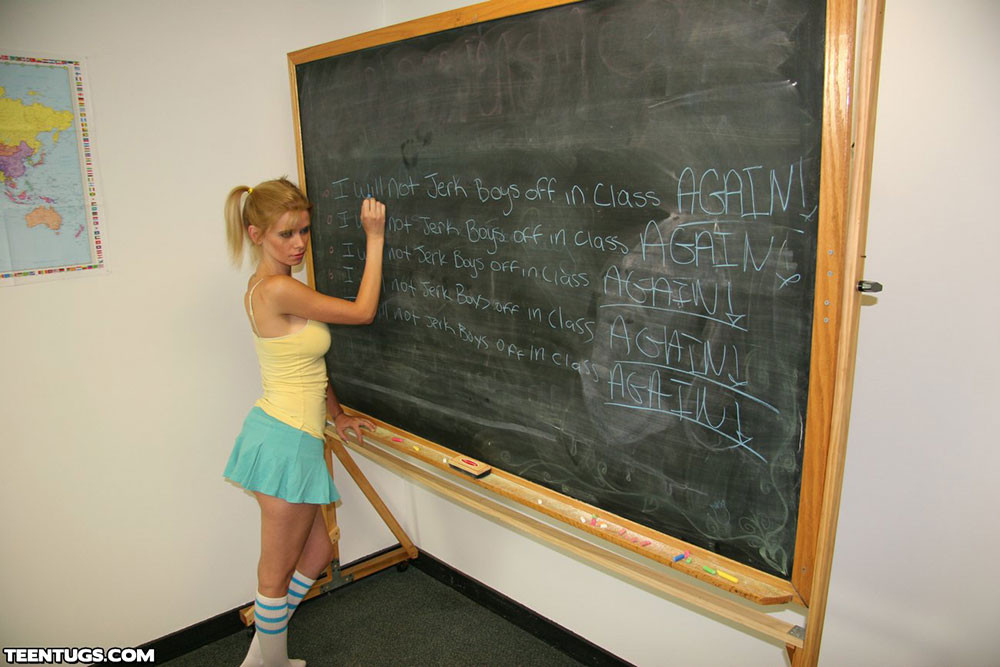 I will not Jerk Boys off in Class AGAIN!
I not Jerk Boys off in Class AGAIN!
I not Jerk Boys off in Class AGAIN!
I not Jerk Boys off in Class AGAIN!
not Jerk Boys off in Class AGAIN!
TEENTUGS.COM